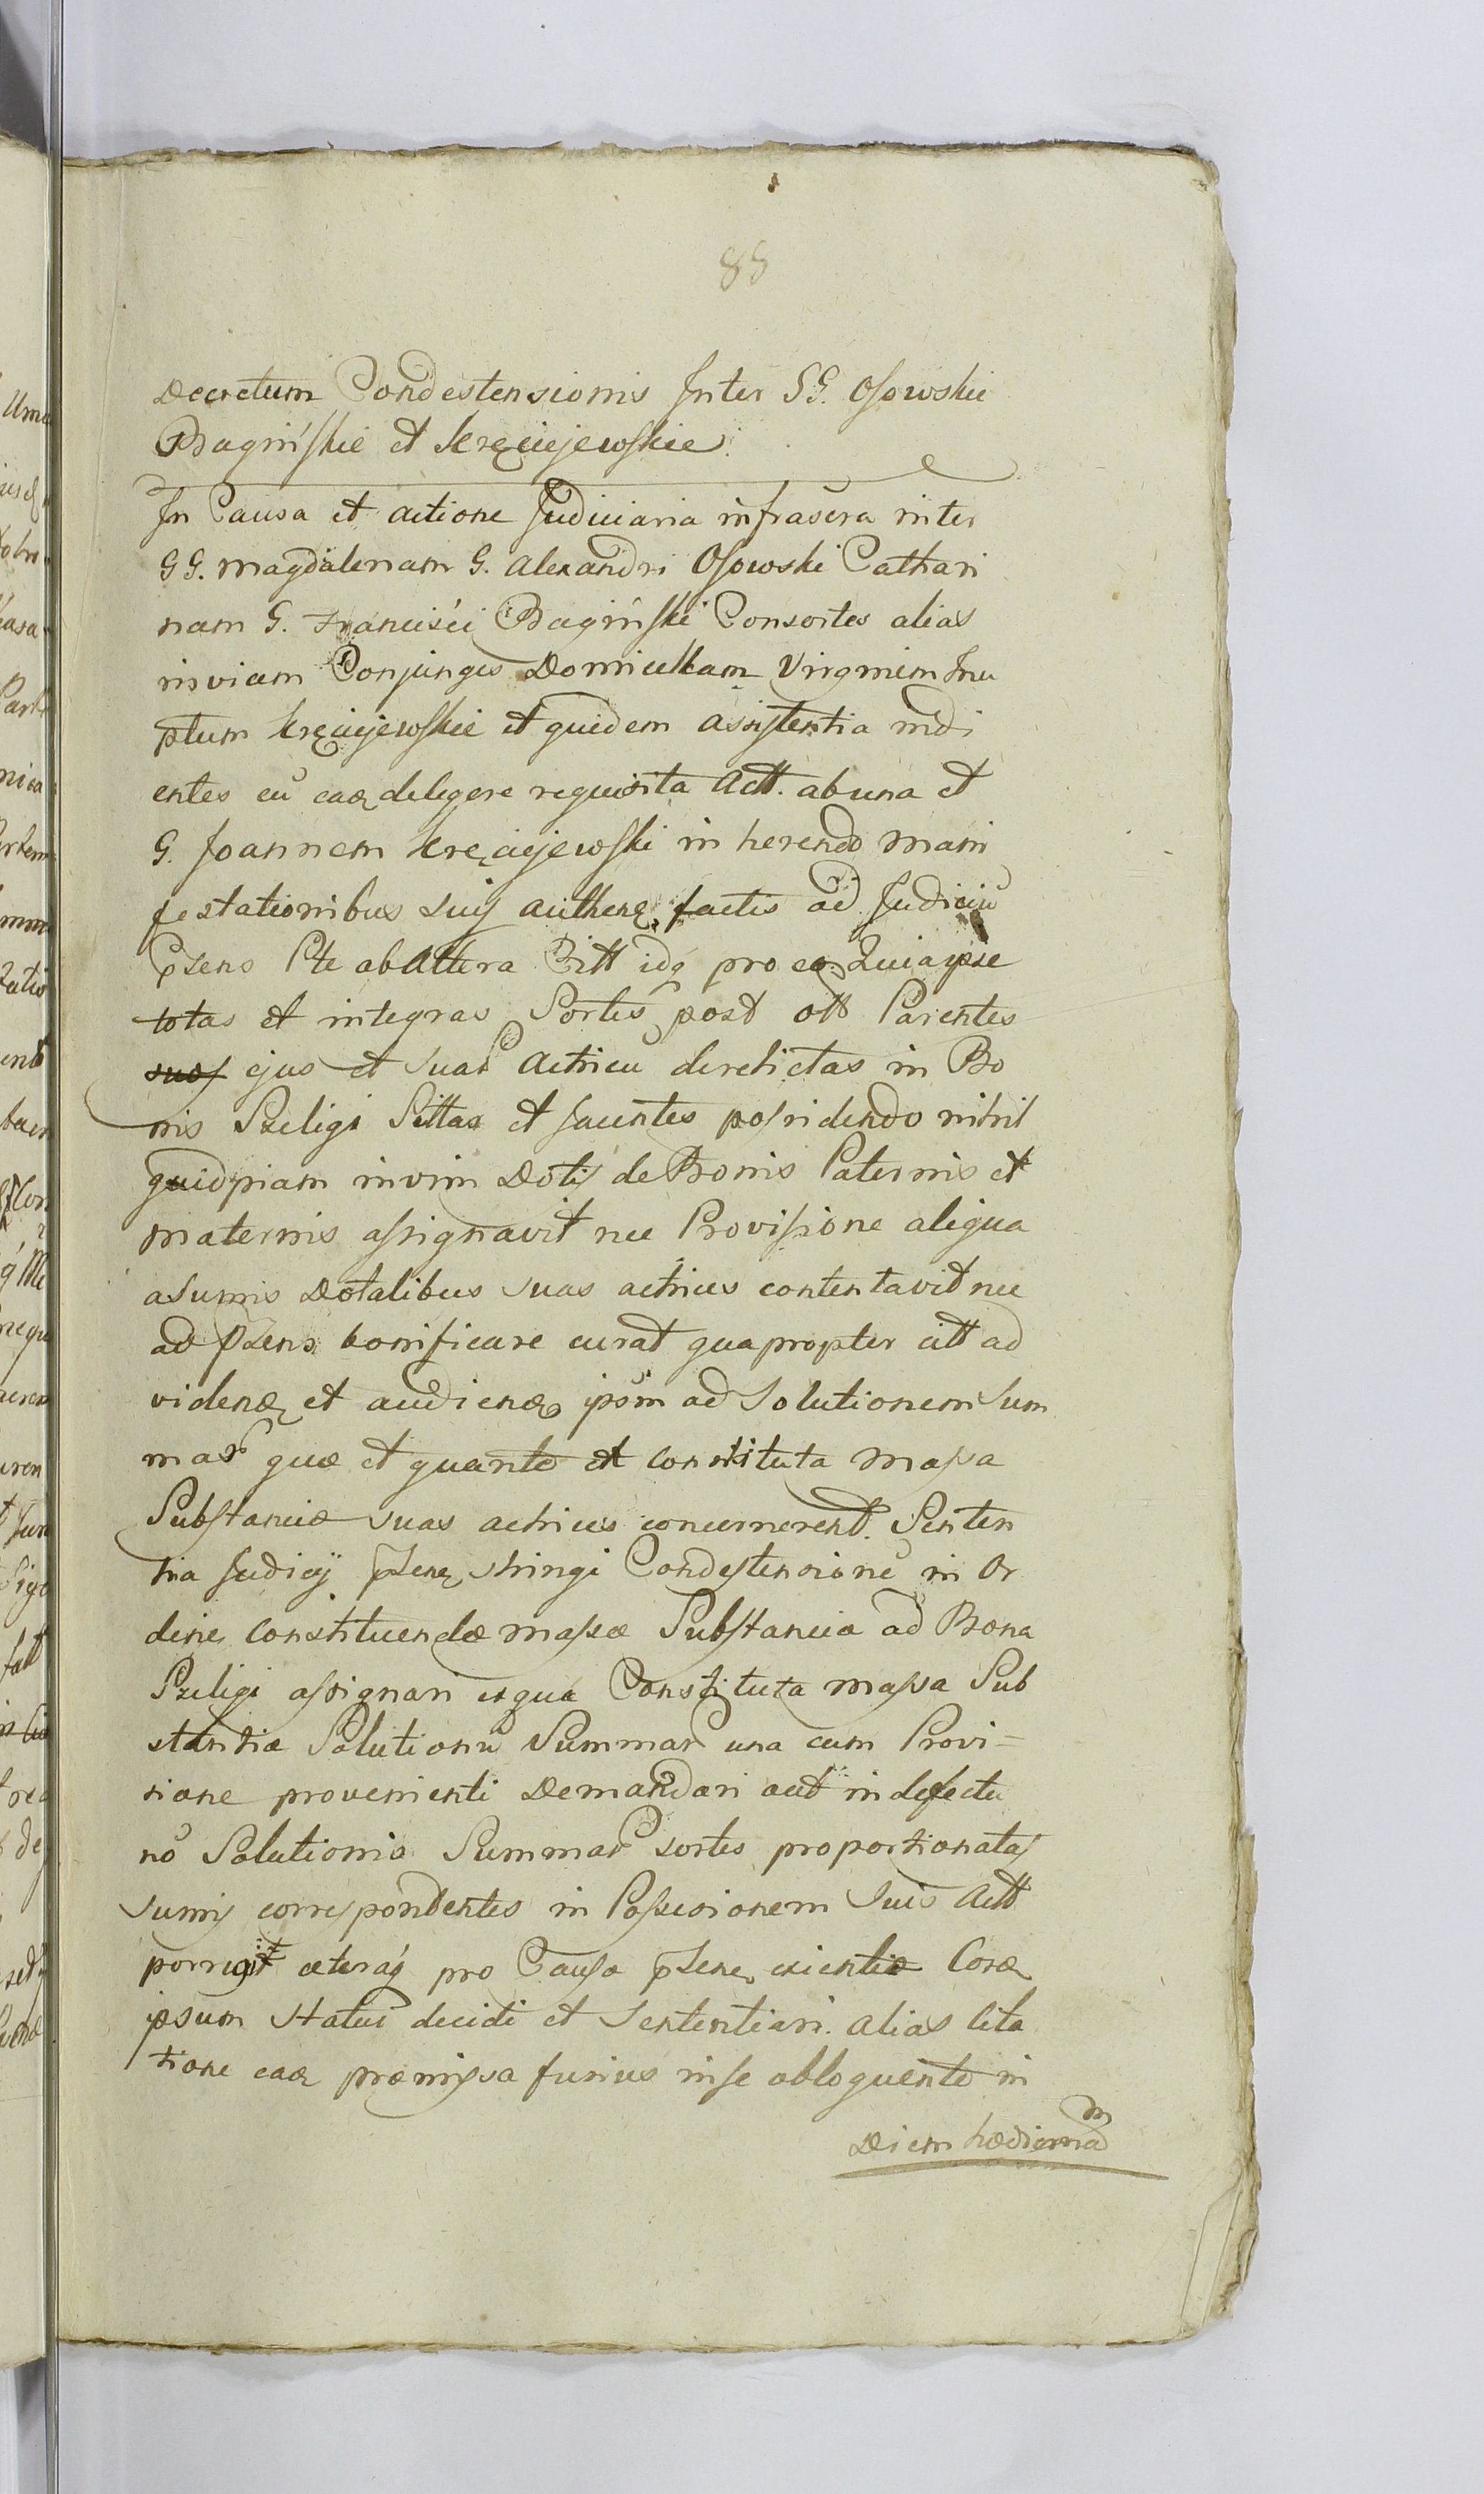 88
Decretum Condestensionis Inter GG. Osowskie
Bagińskie et Kręciejewskie
In Causa et actione Judiciaria infrascra inter
GG. Magdalenam G. Alexandri Osowski Cathari
nam G. Francisci Bagiński Consortes alias
invicem Conjunges Domicellam Virginem Inu
ptum Kręciejewskie et quidem assistentia indi
entes cu eaq delegere requisita Act. ab una et
G. Joannem Kręciejewski in herendo mani
festationibus suis authenq factis ad Judiciu
psens Pte ab Altera Citt idq pro eo Quia ipse
totas et integras Sortes post ott Parentes
suos ejus et suar Actricu derelictas in Bo
nis Szeligi Sittas et Jacentes possidendo nihil
quidpiam invim Dotis de Bonis Paternis et
Maternis assignavit nec Provisione aliqua
a Sumis Dotalibus suas actrices contentavit nec
ad psens bonificare curat qua propter citt ad
videnq et audienq ipsm ad Solutionem Sum
mar quæ et quante et constituta Massa
Substanciæ suas actrices concernerent. Senten
tia Judicij psenq stringi Condestensione in Or
dine Constituendæ Massæ Substancia ad Bona
Szeligi assignari exqua Constituta massa Sub
stantiæ Solutione Summar una cum Provi=
sione provenienti Demandari aut in defectu
no Solutionis Summar sortes proportionatas
sumis correspondentes in Possesionem suis Actt
porrigit cæteraq pro Causa psenq exientia Coræ
ipsum Statui decidi et Sententiari. alias Cita
tione eaq præmissa fusius inse obloquente in
Diem hodierna m